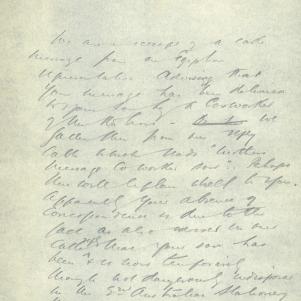 We are in receipt of a cable
message from our Egyptian
Representative advising that
your message has been delivered
to your son by a Coworker
of the Red Cross - We
gather this from our
Cable which reads "Mothers
message Co worker son". Perhaps
this will explain itself to you.
Apparently your absence of
Correspondence is due to the
fact as also advised in our
Cable that your son has
been & is now temporarily
though not dangerously indisposed
in the 2nd Australian Stationary